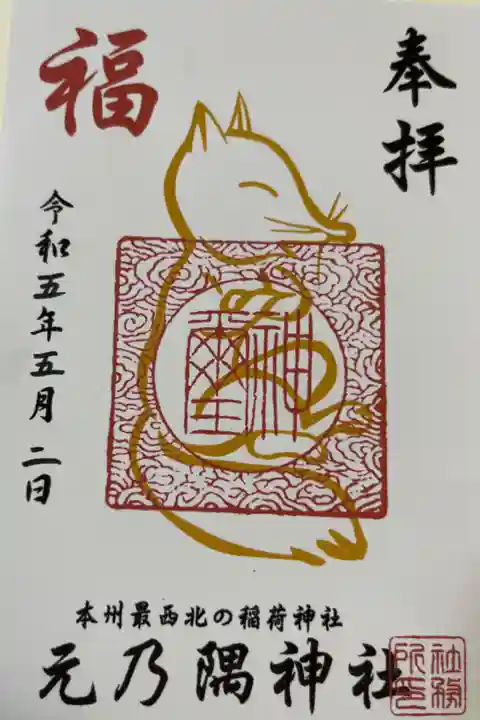 奉拝
福
令和五年五月二日
神璽
本州最西北の稲荷神社
元乃隅神社
社務所印